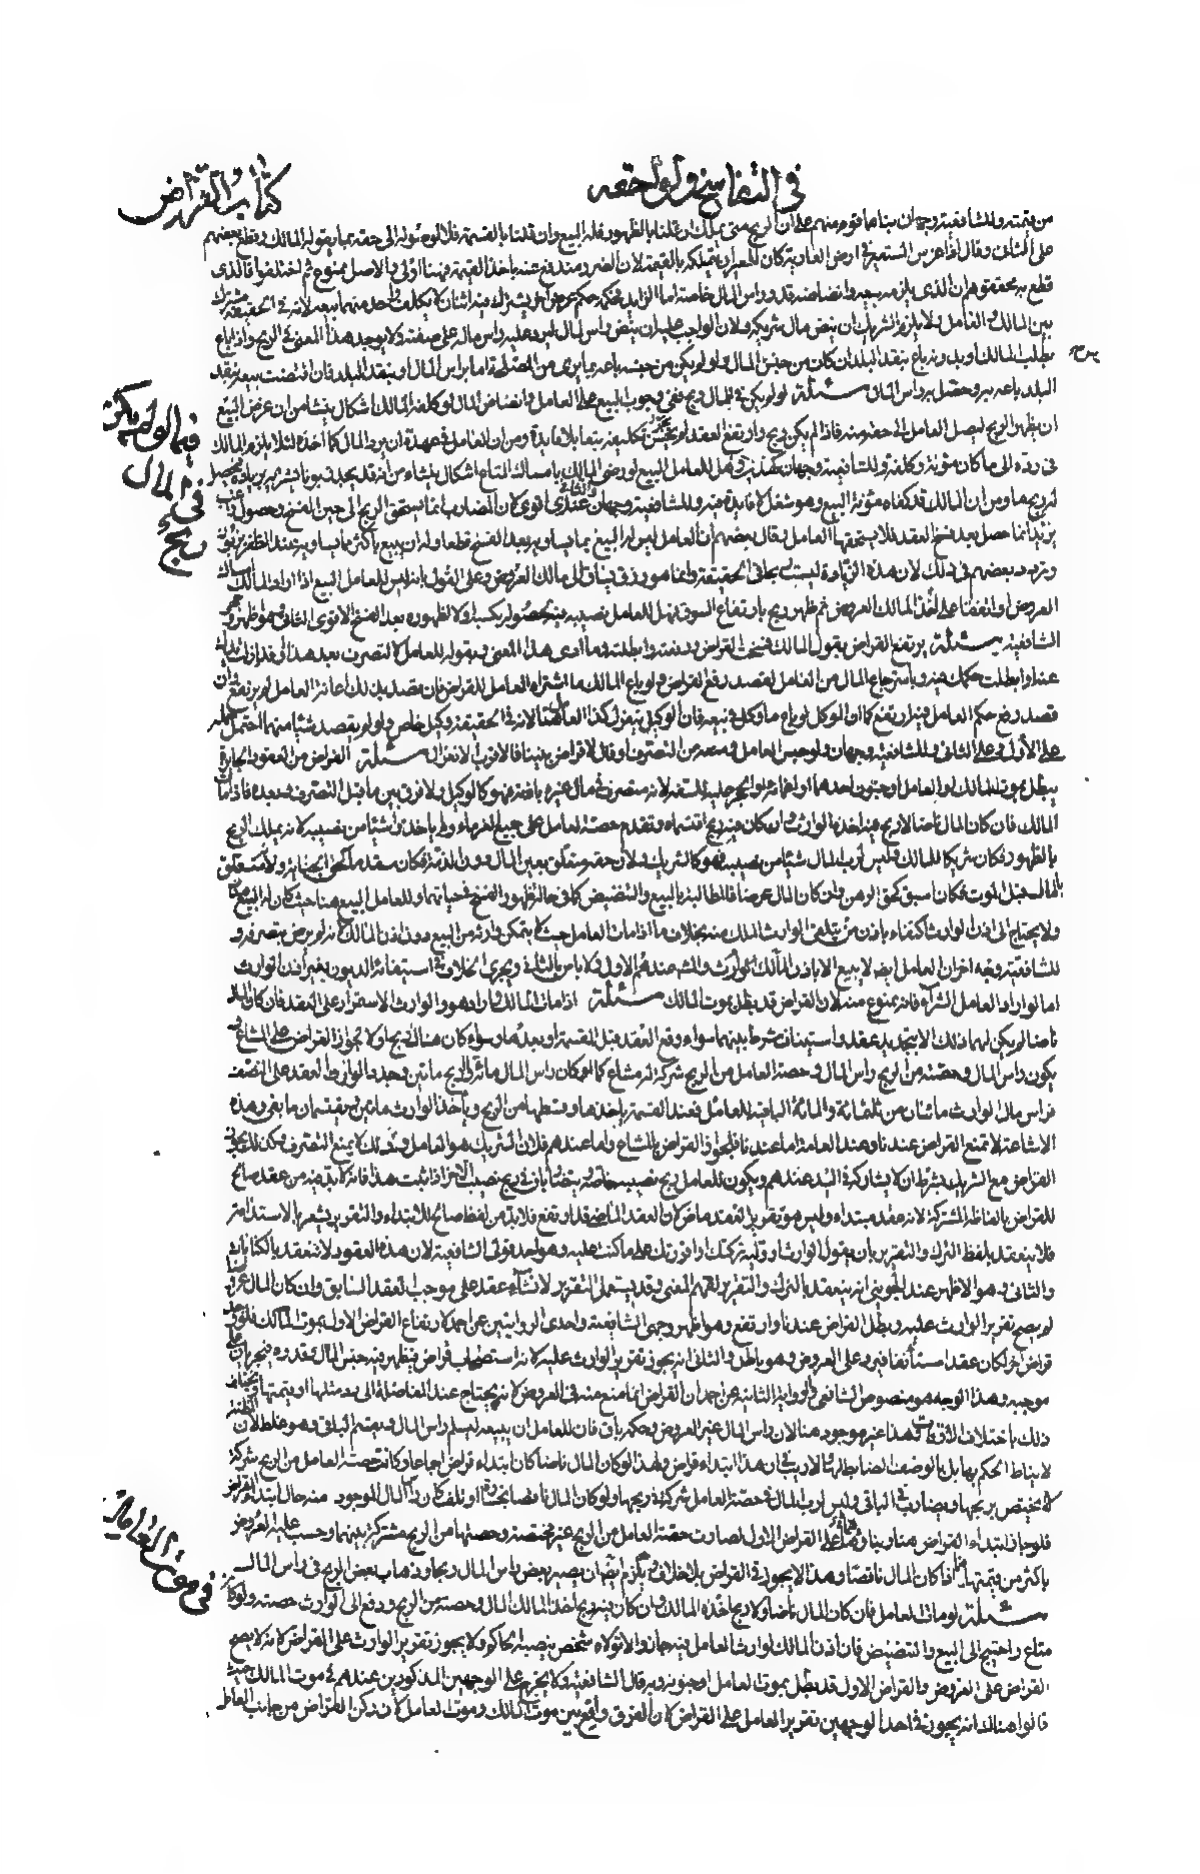 في التفاسخ ولواحقه
كتاب القراض
من قيمته وللشافعية وجهان بناهما قوم منهم على ان الربح متى يملك ان قلنا بالظهور فله البيع وان قلنا بالقسمة فلا لوصوله الى حقه بما يقوله المالك وقطع بعضهم
على الثاني وقال اذا غرس المستعير في ارض العارية كان للمعير ان يتملكه بالقيمة لان الضرر مندفع عنه باخذ القيمة فهنا اولى والاصل ممنوع ثم اختلفوا فالذى
قطع به محققوهم ان الذى يلزمه بيعه وانضاضه قدر راس المال خاصة اما الزايد فحكمه حكم عرض اخر يشترك فيه اثنان لا يكلف واحد منهما بيعه لانه في الحقيقة مشترك
بين المالك والعامل ولا يلزم الشريك ان ينض مال شريكه ولان الواجب عليه ان ينض راس المال ليرد عليه راس ماله على صفته ولا يوجد هذا المعنى في الربح واذا باع
بطلب المالك او بدونه باع بنقد البلد ان كان من جنس المال ولو لم يكن من جنسه باعه بما يرى من المصلحة اما براس المال او بنقد البلد فان اقتضت بيعه بنقد
البلد باعه به وحصل به راس المال مسئلة لو لم يكن في المال ربح ففي وجوب البيع على العامل وانضاض المال لو كلفه المالك اشكال ينشأ من ان غرض البيع
ان يظهر الربح ليصل العامل الى حقه منه فاذا لم يكن ربح وارتفع العقد لم يحسن تكليفه تعبا بلا فايدة ومن ان العامل في عهدة ان يرد المال كما اخذه لئلا يلزم المالك
في رده الى ما كان مؤنة وكلفة وللشافعية وجهان كهذين وهل للعامل البيع لو رضى المالك بامساك المتاع اشكال
ومن ان المالك قد كفاه مؤنة البيع وهو شغل لا فايدة فيه وللشافعية وجهان
يزيد انما حصل بعد فسخ العقد فلا يستحقها العامل وقال بعضهم ان العامل ليس له البيع بما يساويه بعد الفسخ قطعا وله ان يبيع باكثر مما يساويه عند الظفر بزبون
وتردد بعضهم في ذلك لان هذه الزيادة ليست ربحا في الحقيقة وانما هو رزق يساق الى مالك العروض وعلى القول بانه ليس للعامل البيع اذا اراد المالك امساك
العروض او اتفقا على اخذ المالك العروض ثم ظهر ربح بارتفاع السوق فهل للعامل نصيب فيه لحصوله بكسبه او لا لظهوره بعد الفسخ الاقوى الثاني وهو اظهر وجهى
الشافعية مسئلة يرتفع القراض بقول المالك فسخت القراض ورفعته وابطلته وما ادى هذا المعنى وبقوله للعامل لا تتصرف بعد هذا او قد ازلت يدك
عنه او ابطلت حكمك فيه وباسترجاع المال من العامل لقصد رفع القراض ولو باع المالك ما اشتراه العامل للقراض فان قصد بذلك اعانة العامل لم يرتفع وان
قصد رفع حكم العامل فيه ارتفع كما ان الموكل لو باع ما وكل في بيعه فان الوكيل ينعزل كذا العامل هنا لانه في الحقيقة وكيل خاص ولو لم يقصد شيئا منهما احتمل حمله
على الاول وعلى الثاني وللشافعية وجهان ولو حبس العامل ومنعه من التصرف او قال لا قراض بيننا فالاقرب الانعزال مسئلة القراض من العقود الجايزة
يبطل بموت المالك او العامل او جنون احدهما او اغمائه او الحجر عليه للسفه لانه متصرف في مال غيره باذنه فهو كالوكيل ولا فرق بين ما قبل التصرف وبعده فاذا مات
المالك فان كان المال ناضا لا ربح فيه اخذه الوارث وان كان فيه ربح اقتسماه وتقدم حصة العامل على جميع الغرماء ولم ياخذوا شيئا من نصيبه لانه يملك الربح
بالظهور فكان شريكا للمالك وليس لرب المال شيئا من نصيبه فهو كالشريك ولان حقه متعلق بعين المال دون الذمة فكان مقدما كحق الجناية ولانه متعلق
بالمال قبل الموت فكان اسبق كحق الرهن وان كان المال عرضا فالمطالبة بالبيع والتنضيض كما في حالة ظهور الفسخ في حياتهما وللعامل البيع هنا حيث كان له البيع هناك
ولا يحتاج الى اذن الوارث اكتفاء باذن من يتلقى الوارث الملك منه بخلاف ما اذا مات العامل حيث لا يتمكن وارثه من البيع دون اذن المالك لانه لم يرض بتصرفه و
للشافعية وجه اخر ان العامل ايضا لا يبيع الا باذن وارث المالك والمشهور عندهم الاول ولا باس بالثاني ويجرى الخلاف في استيفائه الديون بغير اذن الوارث
اما لو اراد العامل الشراء فانه ممنوع منه لان القراض قد بطل بموت المالك مسئلة اذا مات المالك واراد هو والوارث الاستمرار على العقد فان كان المال
ناضا لم يكن لهما ذلك الا بتجديد عقد واستيناف شرط بينهما سواء وقع العقد قبل القسمة او بعدها وسواء كان هناك ربح او لا لجواز القراض على المشاع
يكون راس المال وحصته من الربح راس المال وحصة العامل من الربح شركة له مشاع كما لو كان راس المال مائة والربح مائتين وجدد الوارث العقد على النصف
فراس مال الوارث مائتان من ثلثمائة والمائة الباقية للعامل فعند القسمة ياخذها وقسطها من الربح وياخذ الوارث مائتين ويقتسمان ما بقى وهذه
الاشاعة لا تمنع القراض عندنا وعند العامة اما عندنا فلجواز القراض بالمشاع واما عندهم فلان الشريك هو العامل وذلك لا يمنع التصرف وكذلك يجوز
القراض مع الشريك بشرط ان لا يشاركه في اليد عندهم ويكون للعامل ربح نصيبه خاصة ويتضاربان في ربح نصيب الاخر اذا ثبت هذا فانه لا بد فيه من عقد صالح
للقراض بالفاظه المشتركة لانه عقد مبتداء وليس هو تقريرا لعقد ماض لان العقد الماضى قد ارتفع فلا بد من لفظ صالح للابتداء والتقرير يشعر بالاستدامة
فلا ينعقد بلفظ الترك والتقرير بان يقول الوارث او قيمه تركتك او اقررتك على ما كنت عليه وهو احد قولى الشافعية لان هذه العقود لا تنعقد بالكنايات
والثاني وهو الاظهر عند الجويني انه ينعقد بالترك والتقرير لفهم المعنى وقد يستعمل التقرير لانشاء عقد على موجب العقد السابق وان كان المال عرضا
لم يصح تقرير الوارث عليه وبطل القراض عندنا وارتفع وهو اظهر وجهى الشافعية واحدى الروايتين عن احمد لارتفاع القراض الاول بموت المالك فلو وقع
قراض اخر لكان عقدا مستأنفا فيرد على العروض وهو باطل والثاني انه يجوز تقرير الوارث عليه لانه استصحاب قراض فيظهر فيه جنس المال بقدره فيجريان على
موجبه وهذا الوجه هو منصوص الشافعي والرواية الثانية عن احمد لان القراض انما منع منه في العروض لانه يحتاج عند المفاضلة الى رد مثلها او قيمتها ويختلف
ذلك باختلاف الاوقات وهذا غير موجود هنا لان راس المال غير العروض وحكمه باق فان للعامل ان يبيعه ليسلم راس المال ويقسم الباقي وهو غلط لان المظنة
لا يناط الحكم بها بل بالوصف الضابط لها ولا ريب في ان هذا ابتداء قراض ولهذا لو كان المال ناضا كان ابتداء قراض اجماعا وكانت حصة العامل من الربح شركة
له يختص بربحها ويضارب في الباقي وليس لرب المال في حصة العامل شركة في ربحها ولو كان المال ناقصا بخسارة او تلف كان راس المال الموجود منه حال ابتداء القراض
فلو جاز ابتداء القراض هنا وبناؤهما على القراض الاول لصارت حصة العامل من الربح غير مختصة وحصتها من الربح مشتركة بينهما وحسب عليه العروض
باكثر من قيمتها فيما اذا كان المال ناقصا وهذا لا يجوز في القراض بلا خلاف ويلزم ايضا ان يصير بعض راس المال ربحا وذهاب بعض الربح في راس المال
مسئلة لو مات العامل فان كان المال ناضا ولا ربح اخذه المالك وان كان فيه ربح اخذ المالك المال وحصته من الربح ودفع الى الوارث حصته ولو كان
متاع واحتيج الى البيع والتنضيض فان اذن المالك لوارث العامل فيه جاز والا تولاه شخص ينصبه الحاكم ولا يجوز تقرير الوارث على القراض لانه لا يصح
القراض على العروض والقراض الاول قد بطل بموت العامل او جنونه وبه قال الشافعية ولا يخرج على الوجهين المذكورين عندهم في موت المالك حيث
قالوا هناك انه يجوز في احد الوجهين تقرير العامل على القراض لان الفرق واقع بين موت المالك وموت العامل لان ركن القراض من جانب العامل
فيما لو لم يكن
في المال
ربح
في موت العامل